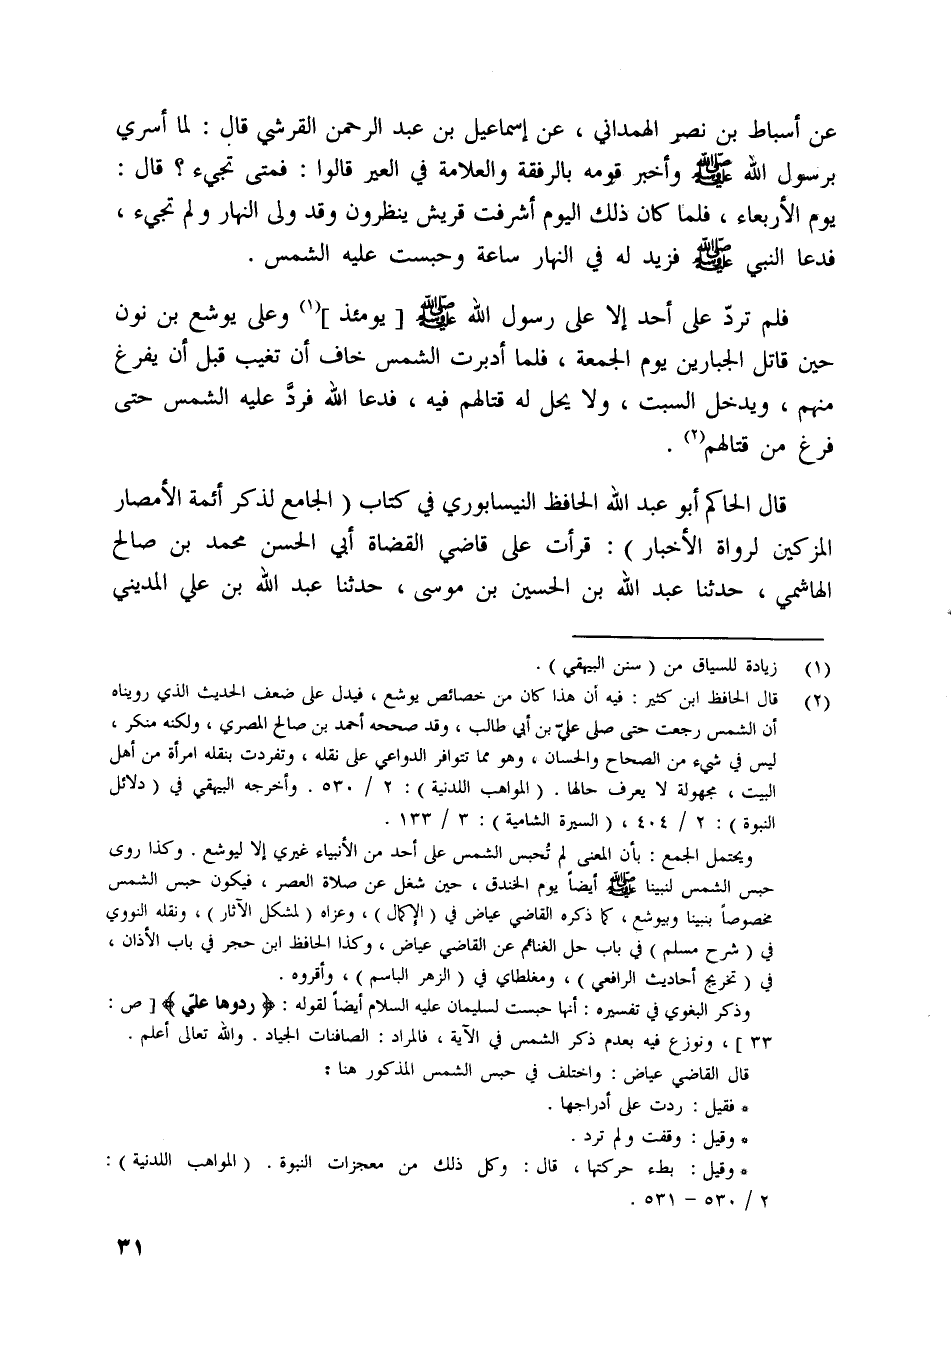 عن أسباط بن نصر الهمداني ، عن إسماعيل بن عبد الرحمن القرشي قال : لما أسري
برسول الله ﷺ وأخبر قومه بالرفقة والعلامة في العير قالوا : فمتى تجيء ؟ قال :
يوم الأربعاء ، فلما كان ذلك اليوم أشرفت قريش ينظرون وقد ولى النهار ولم تجيء ،
فدعا النبي ﷺ فزيد له في النهار ساعة وحبست عليه الشمس .
فلم تردّ على أحد إلا على رسول الله ﷺ [ يومئذ ](١) وعلى يوشع بن نون
حين قاتل الجبارين يوم الجمعة ، فلما أدبرت الشمس خاف أن تغيب قبل أن يفرغ
منهم ، ويدخل السبت ، ولا يحل له قتالهم فيه ، فدعا الله فردَّ عليه الشمس حتى
فرغ من قتالهم(٢) .
قال الحاكم أبو عبد الله الحافظ النيسابوري في كتاب ( الجامع لذكر أئمة الأمصار
المزكين لرواة الأخبار ) : قرأت على قاضي القضاة أبي الحسن محمد بن صالح
الهاشمي ، حدثنا عبد الله بن الحسين بن موسى ، حدثنا عبد الله بن علي المديني
(١) زيادة للسياق من ( سنن البيهقي ) .
(٢) قال الحافظ ابن كثير : فيه أن هذا كان من خصائص يوشع ، فيدل على ضعف الحديث الذي رويناه
أن الشمس رجعت حتى صلى عليّ بن أبي طالب ، وقد صححه أحمد بن صالح المصري ، ولكنه منكر ،
ليس في شيء من الصحاح والحسان ، وهو مما تتوافر الدواعي على نقله ، وتفردت بنقله امرأة من أهل
البيت ، مجهولة لا يعرف حالها . ( المواهب اللدنية ) : ٢ / ٥٣٠ . وأخرجه البيهقي في ( دلائل
النبوة ) : ٢ / ٤٠٤ ، ( السيرة الشامية ) : ٣ / ١٣٣ .
ويحتمل الجمع : بأن المعنى لم تُحبس الشمس على أحد من الأنبياء غيري إلا ليوشع . وكذا روى
حبس الشمس لنبينا ﷺ أيضاً يوم الخندق ، حين شغل عن صلاة العصر ، فيكون حبس الشمس
مخصوصاً بنبينا وبيوشع ، كما ذكره القاضي عياض في ( الإكمال ) ، وعزاه ( لمشكل الآثار ) ، ونقله النووي
في ( شرح مسلم ) في باب حل الغنائم عن القاضي عياض ، وكذا الحافظ ابن حجر في باب الأذان ،
في ( تخريج أحاديث الرافعي ) ، ومغلطاي في ( الزهر الباسم ) ، وأقروه .
وذكر البغوي في تفسيره : أنها حبست لسليمان عليه السلام أيضاً لقوله : ﴿ ردوها عليّ ﴾ [ ص :
٣٣ ] ، ونوزع فيه بعدم ذكر الشمس في الآية ، فالمراد : الصافنات الجياد . والله تعالى أعلم .
قال القاضي عياض : واختلف في حبس الشمس المذكور هنا :
* فقيل : ردت على أدراجها .
* وقيل : وقفت ولم ترد .
* وقيل : بطء حركتها ، قال : وكل ذلك من معجزات النبوة . ( المواهب اللدنية ) :
٢ / ٥٣٠ – ٥٣١ .
٣١